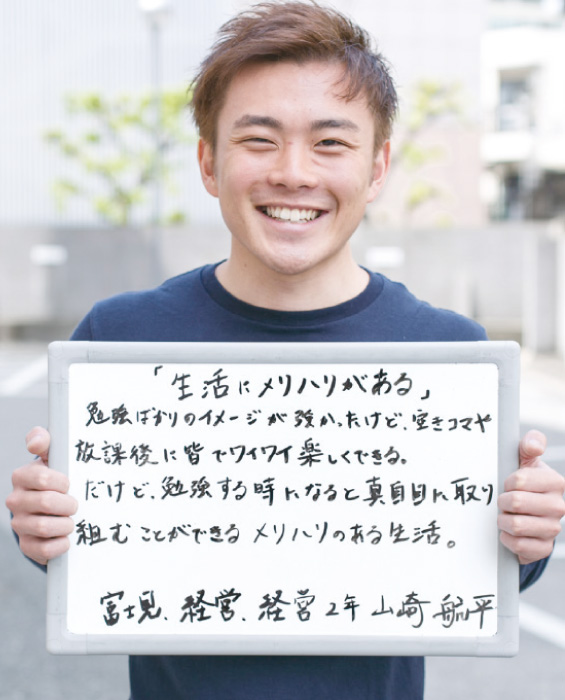 「生活にメリハリがある」
勉強ばかりのイメージが強かったけど、空きコマや
放課後に皆でワイワイ楽しくできる。
だけど、勉強する時になると真面目に取り
組むことができるメリハリのある生活。
富士見、経営、経営2年 山崎 航平